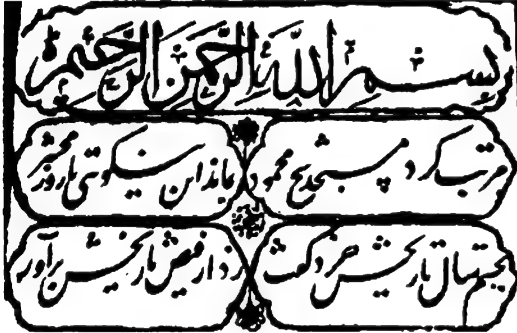 بسم الله الرحمن الرحیم
مرتب کرد مسجد شیخ محمود بماند این نیکوئی تا روز محشر
بجستم سال تاریخش خرد گفت ز دار فیض تاریخش برآور